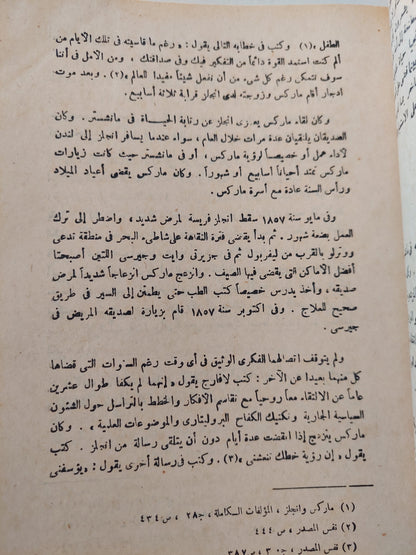 الطفل »(١) وكتب فى خطابه التالى يقول : « رغم ما قاسيته فى تلك الأيام من
ألم كنت استمد القوة دائماً من التفكير فيك وفى صداقتك ، ومن الأمل فى أننا
سوف نتمكن رغم كل شىء من أن نفعل شيئاً مفيدا للعالم »(٢) . وبعد موت
ادجار أقام ماركس وزوجته لدى انجلز قرابة ثلاثة أسابيع .
وكان لقاء ماركس يعزى انجلز عن رتابة الحياة فى مانشستر . وكان
الصديقان يلتقيان عدة مرات خلال العام ، سواء عندما يسافر انجلز إلى لندن
لأداء عمل أو خصيصاً لرؤية ماركس ، أو فى مانشستر حيث كانت زيارات
ماركس تمتد أحياناً أسابيع أو شهوراً . وكان ماركس يقضى أعياد الميلاد
ورأس السنة عادة مع أسرة ماركس .
وفى مايو سنة ١٨٥٧ سقط انجلز فريسة لمرض شديد ، واضطر إلى ترك
العمل بضعة شهور . ثم بدأ يقضى فترة النقاهة على شاطىء البحر فى منطقة تدعى
ووترلو بالقرب من ليفربول ثم فى جزيرتى وايت وجيرسى اللتين أصبحتا
أفضل الأماكن التى يقضى فيها الصيف . وانزعج ماركس انزعاجاً شديداً لمرض
صديقه ، وأخذ يدرس خصيصاً كتب الطب حتى يطمئن إلى السير فى طريق
صحيح للعلاج . وفى اكتوبر سنة ١٨٥٧ قام بزيارة لصديقه المريض فى
جيرسى .
ولم يتوقف اتصالهما الفكرى الوثيق فى أى وقت رغم السنوات التى قضاها
كل منهما بعيدا عن الآخر : كتب لافارج يقول « إنهما لم يكفا طوال عشرين
عاماً عن الالتقاء معاً روحياً مع تقاسم الأفكار والخطط بالتراسل حول الشئون
السياسية الجارية وتكتيك الكفاح البروليتارى والموضوعات العلمية » . وكان
ماركس ينزعج إذا انقضت عدة أيام دون أن يتلقى رسالة من انجلز . كتب
يقول « إن رؤية خطك تنعشنى »(٣) . وكتب فى رسالة أخرى يقول : « يؤسفنى
(١) ماركس وانجلز ، المؤلفات الكاملة ، ج٢٨ ، ص ٤٣٤
(٢) نفس المصدر ، ص ٤٤٤
(٣) نفس المصدر ، ج٣٠ ، ص ٣٨٧